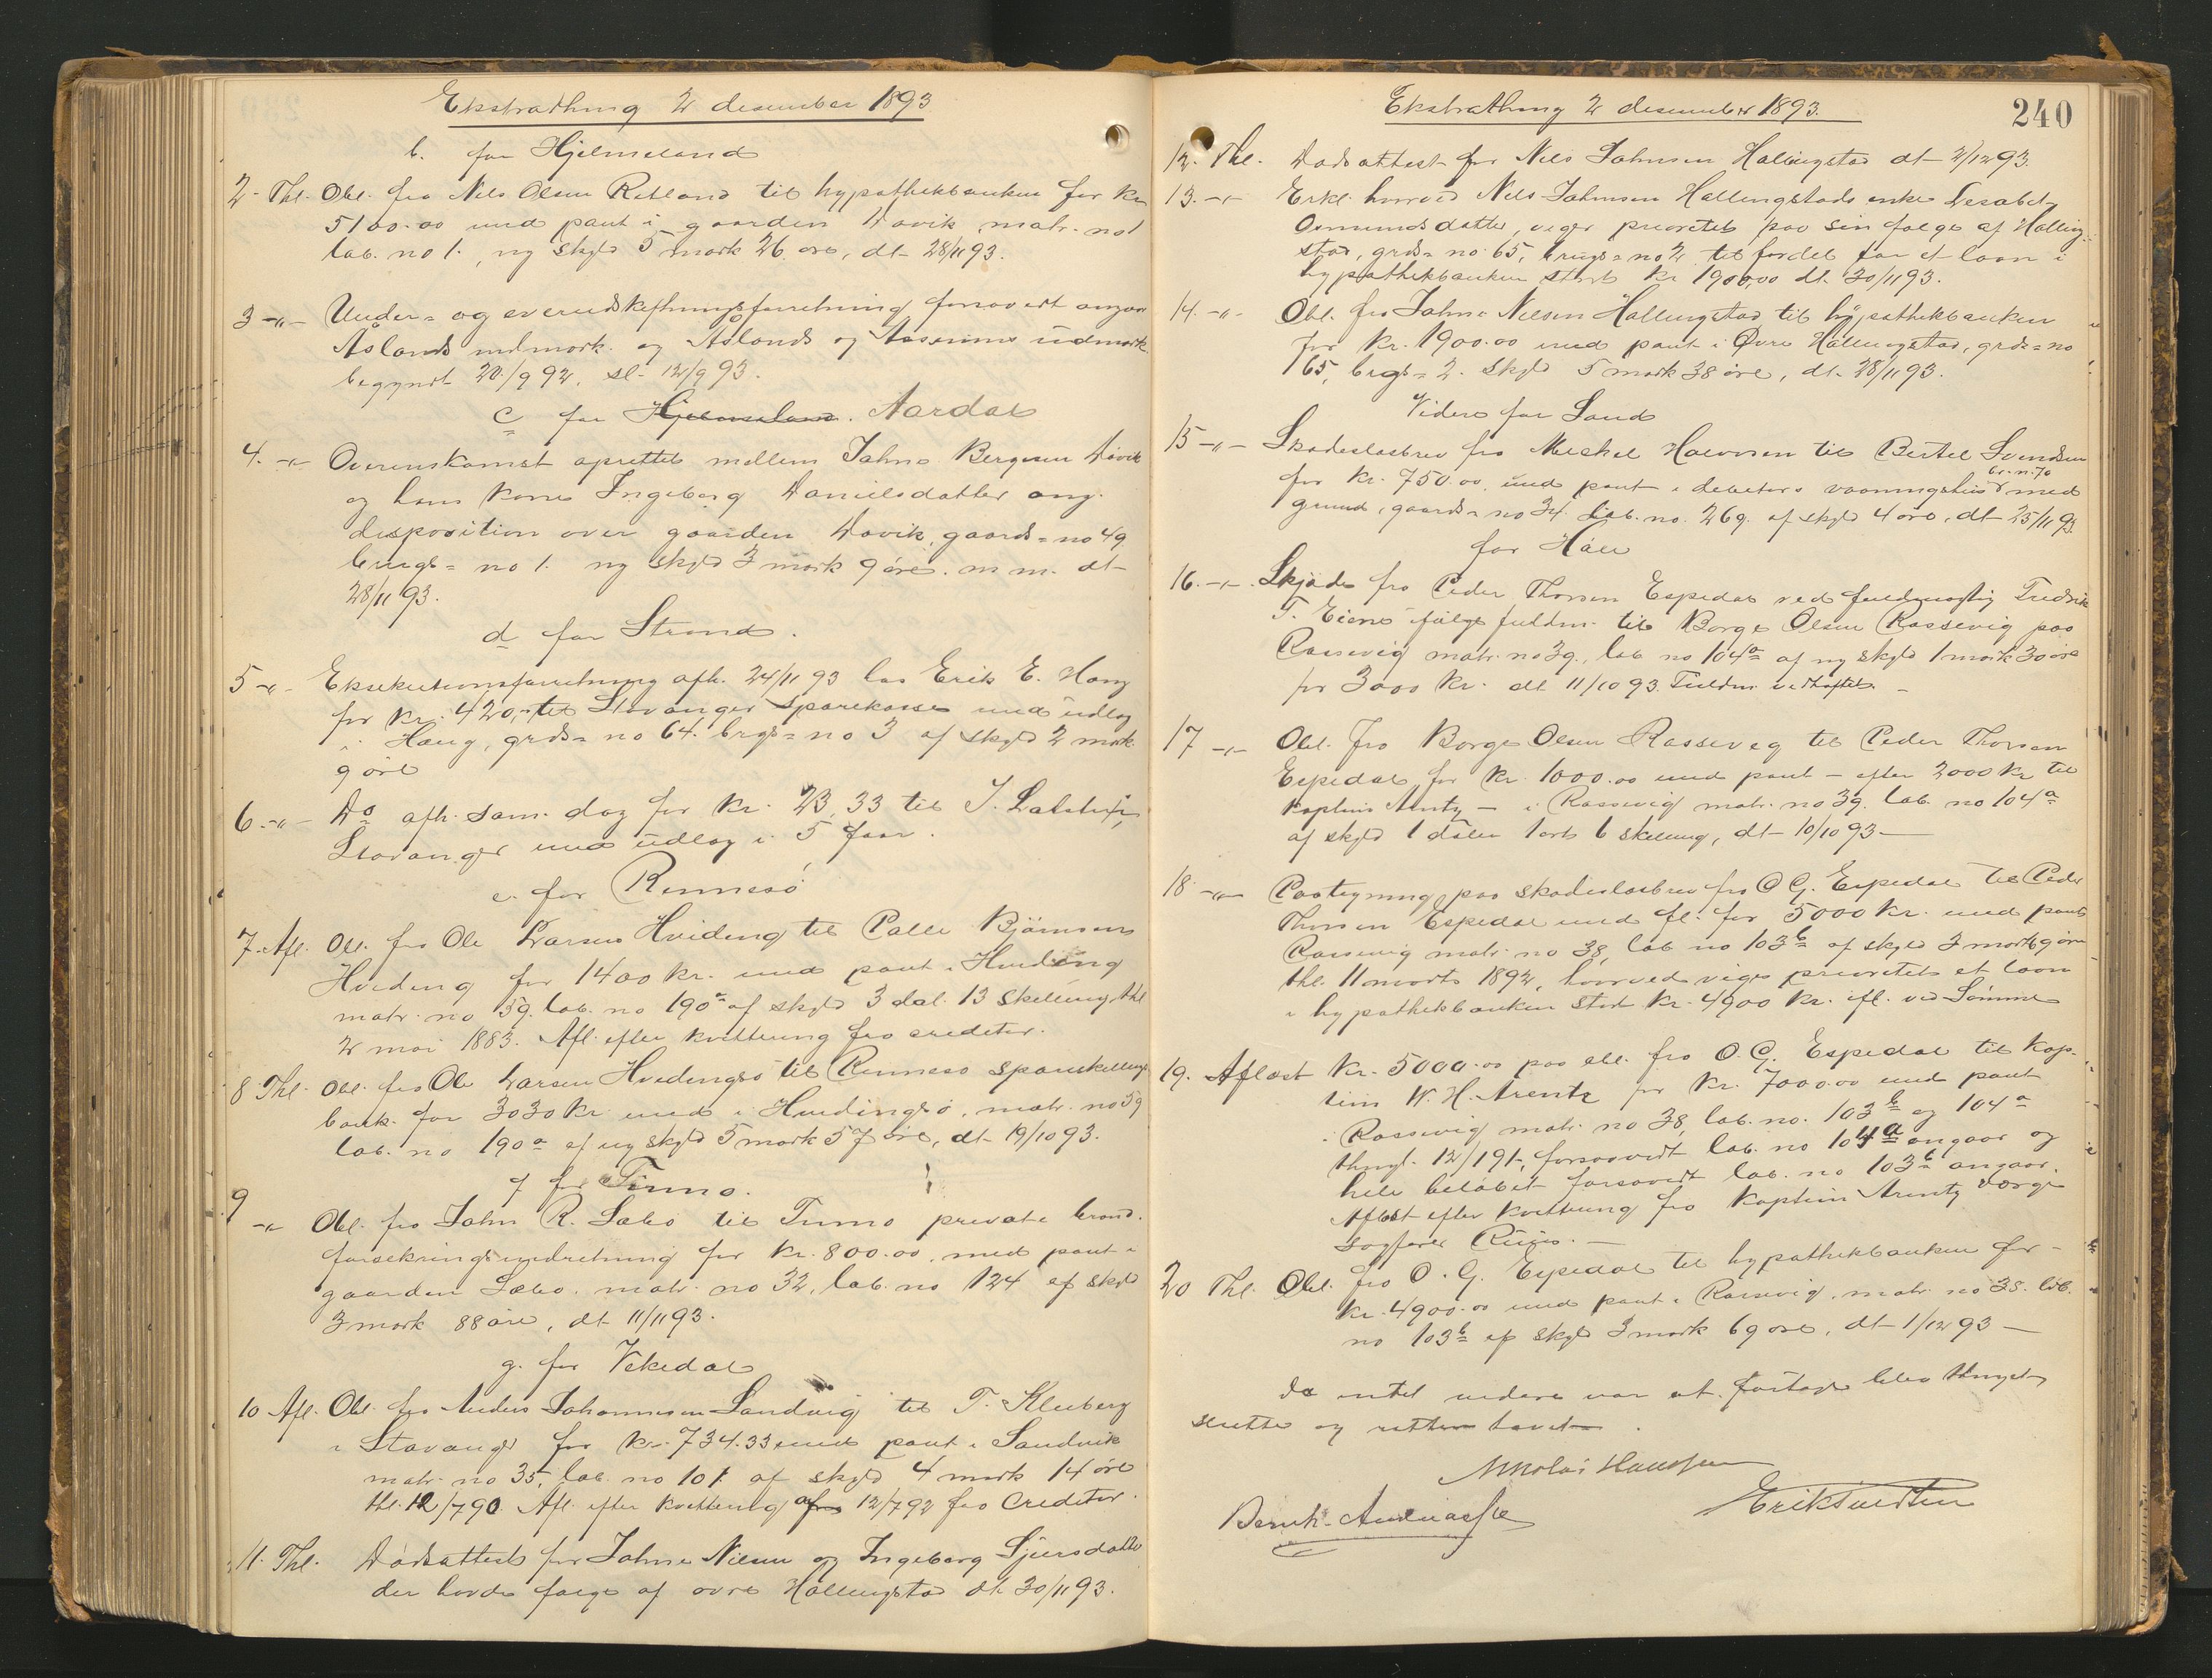 Ekstrathing 2 desember 1893
b. for Hjelmeland
2- Thl. Obl. fra Nils Olsen Retland til hypothekbanken for kr
5100.00 med pant i gaarden Havik, matr. no 1
lab. no 1., ny skyld 5 mark 26 øre, dt- 28/11 93.
3 -„- Under- og overudskiftningsforretning forsovidt angaar
Åslands indmark. og Åslands og Aasens udmark
begyndt 20/9 92, sl. 12/9 93.
c for Hjelmeland. Aardal
4. -„- Overenskomst oprettet mellem Jahne Bergesen Havik
og hans kone Ingeborg Danielsdatter ang.
disposition over gaarden Hovik, gaards=no 49
brugs= no 1. ny skyld 3 mark 9 øre. m m. dt-
28/11 93.
d for Strand.
5 -„- Eksekutionsforretning afh. 24/11 93 hos Erik E. Haug
for kr. 420,- til Stavanger Sparekasse med udlæg
i Haug, grds= no 64. brgs= no 3 af skyld 2 mark
9 øre
6. -„- Do afh. sam. dag for kr. 23,33 til J.
Stavanger med udlæg i 5 faar.
e. for Rennesø
7. Afl. Obl. fra Ole Larsen Hviding til Palle Bjørnsen
Hviding for 1400 kr. med pant i Hviding
matr. no 59. lab. no 190a af skyld 3 dal. 13 skilling thl
2 mai 1883. Afl. efter kvittering fra creditor.
8 Thl. Obl. fra Ole Larsen Hvidingsø til Rennesø Spareskillings
bank. for 3030 kr med i Hvidingsø, matr. no 59
lab. no 190a af ny skyld 5 mark 57 øre, dt- 19/10 93.
f for Finnø.
9 -„- Obl. fra Jahn R. Ladsø til Finnø private brand-
forsikringsindretning for kr. 800.00, med pant i
gaarden Ladsø, matr. no 32, lab. no 124 af skyld
3 mark 88 øre, dt- 11/11 93.
g. for Vikedal
10 Afl. Obl. fra Anders Johannesen Sandvig til T. Kleiberg
i Stavanger for kr. 734.33 med pant i Sandvik
matr. no 35, lab. no 101. af skyld 4 mark 14 øre
thl. 12/7 90 Afl. efter kvittering af 12/7 92 fra Creditor.
11. Thl. Dødsattest for Jahne Nilsen og Ingeborg Sjursdatter
der havde fæige af øvre Hallingstad dt. 30/11 93.
240
Ekstrathing 2 desember 1893.
12. Thl. Dødsattest for Nils Jahnsen Hallingstad dt- 2/12 93.
13. -„- Erkl. hvorved Nils Jahnsen Hallingstads enke Lisabet
Osmundsdatter, viger prioritet paa sin følge af Halling-
stad, grds= no 65, brugs= no 2 til fordel for et laan i
hypothekbanken stort kr 1900,00 dt. 30/11 93.
14. -„- Obl. fra Jahne Nilsen Hallingstad til hypothekbanken
for kr. 1900.00 med pant i Øvre Hallingstad, grds=no
65, brgs= 2. skyld 5 mark 38 øre, dt. 28/11 93.
Videre for Sand
15 -„- Skadesløsbrev fra Mickel Halvorsen til Bertel Svendsen
for kr. 750.00. med pant i debetors vaaningshus br. n. 70 med
grund, gaards= no 34 Lab. no. 269. af skyld 4 øre, dt- 25/11 93.
for Høle
16. -„- Skjøde fra Peder Thorsen Espedal ved fuldmægtig Fredrik
T. Eiene ifølge fuldm. til Børge Olsen Rossevig paa
Rossevig matr. no 39., lab no 104a af ny skyld 1 mark 30 øre
for 3000 kr. dt 11/10 93. Fuldm. vedhæftet. -
17 -„- Obl. fra Børge Olsen Rossevig til Peder Thorsen
Espedal for kr. 1000.00 med pant - efter 2000 kr til
kaptein Arentz - i Rossevig matr. no 39. lab. no 104a
af skyld 1 daler 1 ort 6 skilling, dt- 10/10 93 -
18 -„- Paategning paa skadesløsbrev fra O G. Espedal til Peder
Thorsen Espedal med fl. for 5000 kr. med pant
Rossevig matr. no 38, lab no 103b af skyld 3 mark 69 øre
thl. 11 marts 1892, hvorved viges prioritet et laan
i hypothekbanken stort kr. 4900 kr. ifl. ved Sømme
19. Afløst kr. 5000.00 paa obl. fra O. G. Espedal til kap-
tein W. H. Arentz for kr. 7000.00 med pant
i Rossevig matr. no 38, lab. no. 103b og 104a
thngl. 12/1 91, forsaavidt lab. no 104a angaar og
hele beløbet forsavidt lab. no 103b angaar.
Afløst efter kvittering fra kaptein Arentz værge
sagfører Riis. -
20 Thl. Obl. fra O. G. Espedal til hypothekbanken for -
kr. 4900.00 med pant i Rossevig, matr. no 38. lab.
no 103b af skyld 3 mark 69 øre, dt- 1/12 93 -
Da intet videre var at foretage blev thinget
sluttet og retten hævet.
Nikolai Hanssen
Bernh. Andreassen
Erik Tuedten